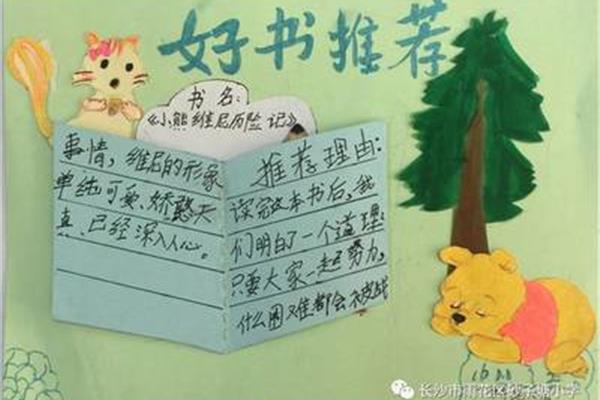 好书推荐
书名:
《小熊维尼历险记》
事情，维尼的形象
单纯可爱、娇憨天
真、已经深入人心。
推荐理由:
读完这本书后，我
们明白了一个道理:
只要大家一起努力，
什么困难都会被战
长沙市雨花区砂子塘小学